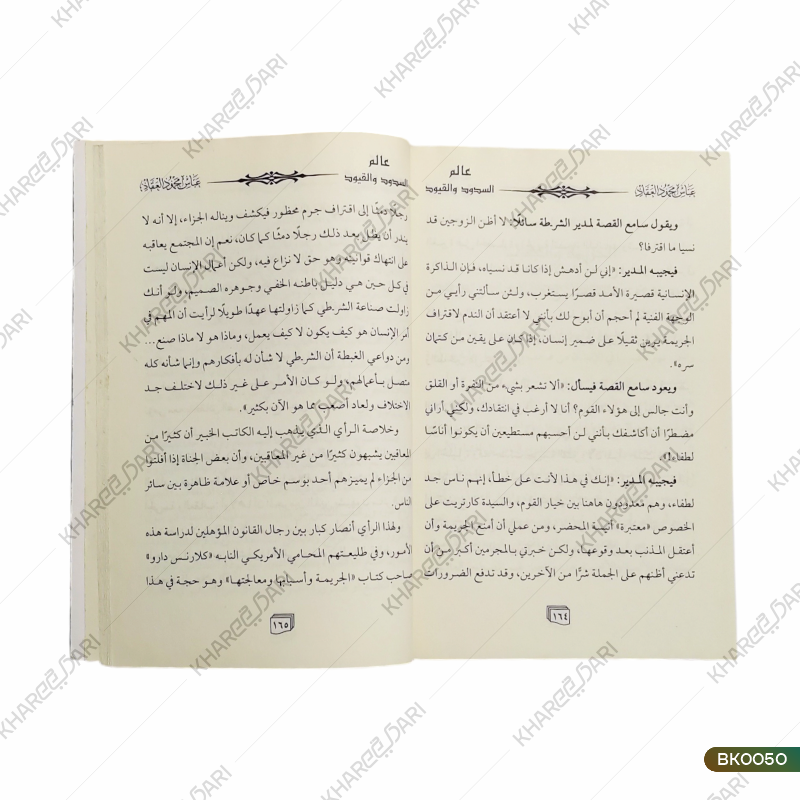 عالم
السدود والقيود
عباس محمود العقاد
ويقول سامع القصة لمدير الشرطة سائلًا: لا أظن الزوجين قد
نسيا ما اقترفا؟
فيجيبه المدير: «إني لن أدهش إذا كانا قد نسياه، فإن الذاكرة
الإنسانية قصيرة الأمد قصرًا يستغرب، ولئن سألتني رأيي من
الوجهة الفنية لم أحجم أن أبوح لك بأنني لا أعتقد أن الندم لاقتراف
الجريمة يرين ثقيلًا على ضمير إنسان، إذا كان على يقين من كتمان
سره».
ويعود سامع القصة فيسأل: «ألا تشعر بشيء من النفرة أو القلق
وأنت جالس إلى هؤلاء القوم؟ أنا لا أرغب في انتقادك، ولكني أراني
مضطرًا أن أكاشفك بأنني لن أحسبهم مستطيعين أن يكونوا أناسًا
لطفاء!».
فيجيبه المدير: «إنك في هذا لأنت على خطأ، إنهم ناس جد
لطفاء، وهم معدودون هاهنا بين خيار القوم، والسيدة كارتريت على
الخصوص «معتبرة» أنيسة المحضر، ومن عملي أن أمنع الجريمة وأن
أعتقل المذنب بعد وقوعها، ولكن خبرتي بالمجرمين أكبر من أن
تدعني أظنهم على الجملة شرًا من الآخرين، وقد تدفع الضرورات
١٦٤
عالم
السدود والقيود
عباس محمود العقاد
رجلًا دمثًا إلى اقتراف جرم محظور فيكشف ويناله الجزاء، إلا أنه لا
يندر أن يظل بعد ذلك رجلًا دمثًا كما كان، نعم إن المجتمع يعاقبه
على انتهاك قوانينه وهو حق لا نزاع فيه، ولكن أعمال الإنسان ليست
في كل حين هي دليل باطنه الخفي وجوهره الصميم، ولو أنك
زاولت صناعة الشرطي كما زاولتها عهدًا طويلًا لرأيت أن المهم في
أمر الإنسان هو كيف يكون لا كيف يعمل، وماذا هو لا ماذا صنع...
ومن دواعي الغبطة أن الشرطي لا شأن له بأفكارهم وإنما شأنه كله
متصل بأعمالهم، ولو كان الأمر على غير ذلك لاختلف جد
الاختلاف ولعاد أصعب مما هو الآن بكثير».
وخلاصة الرأي الذي يذهب إليه الكاتب الخبير أن كثيرًا من
المعاقبين يشبهون كثيرًا من غير المعاقبين، وأن بعض الجناة إذا أفلتوا
من الجزاء لم يميزهم أحد بوسم خاص أو علامة ظاهرة بين سائر
الناس.
ولهذا الرأي أنصار كبار بين رجال القانون المؤهلين لدراسة هذه
الأمور، وفي طليعتهم المحامي الأمريكي النابه «كلارنس دارو»
صاحب كتاب «الجريمة وأسبابها ومعالجتها» وهو حجة في هذا
١٦٥
KHAREETARI
BK0050